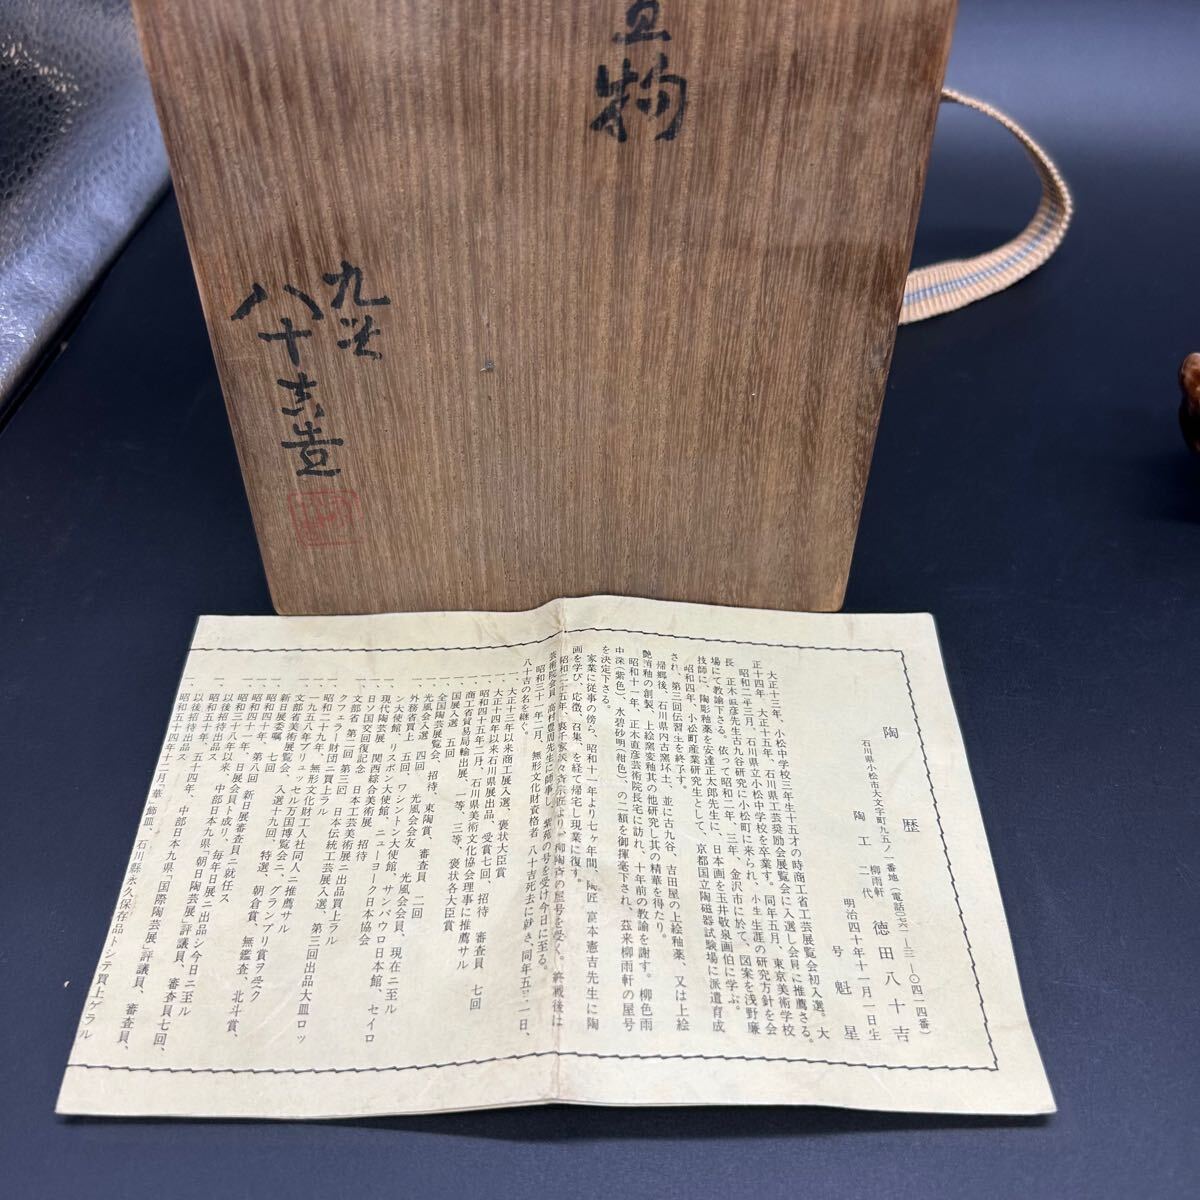 置物
九谷
八十吉造
陶歴
石川県小松市大文字町九五ノ一番地(電話〇七六一―二三―〇四一四番)
柳雨軒 徳田八十吉
陶工二代 明治四十年十一月一日生
号 魁星
大正十三年、小松中学校三年生十五才の時商工省工芸展覧会初入選。大
正十四年、大正十五年、石川県工芸奨励会展覧会に入選し会員に推薦さる。
昭和二年三月、石川県立小松中学校を卒業す。同年五月、東京美術学校
長 正木直彦先生古九谷研究に小松町に来られ、小生生涯の研究方針を会
場にて教諭下さる。依って昭和二年、三年、金沢市に於て、図案を浅野廉
技師に、陶彫釉薬を安達正太郎先生に、日本画を玉井敬泉画伯に学ぶ。
昭和四年、小松町産業研究生として、京都国立陶磁器試験場に派遣育成
され、第三回伝習生を終了す。
帰郷後、石川県内古窯坏土、並に古九谷、吉田屋の上絵釉薬、又は上絵
艶消釉の創製、上絵窯変釉其の他研究し其の精華を得たり。
昭和十一年、正木直彦芸術院長宅に訪れ、十年前の教諭を謝す。柳色雨
中深(紫色)、水碧砂明(紺色)、の二額を御揮毫下され、茲来柳雨軒の屋号
を決定下さる。
家業に従事の傍ら、昭和十一年より七ヶ年間、陶匠 富本憲吉先生に陶
画を学び、応徴、召集、を経て帰宅し現業に復す。
昭和二十五年、裏千家淡々斉宗匠より、柳陶斉の屋号を受く。終戦後は
芸術院会員 高村豊周先生に師事し、紫苑の号を受け今日に至る。
昭和三十一年二月、無形文化財資格者 八十吉死去に就き、同年五月一日、
八十吉の名を継ぐ。
一、大正十三年以来商工展入選、褒状大臣賞
一、大正十四年以来石川県展出品、受賞七回、招待 審査員 七回
一、昭和四十五年二月、石川県美術文化協会理事に推薦サル
一、商工省貿易局輸出展、一等、三等、褒状各大臣賞
一、国展入選 五回
一、全国陶芸展覧会、招待、東陶賞、審査員 二回
一、光風会入選 四回 光風会会友 光風会会員、現在ニ至ル
一、外務省買上 五回、ワシントン大使館、サンパウロ日本館、セイロ
ン大使館、リスボン大使館、ニューヨーク日本協会
一、現代陶芸展、関西綜合美術展、招待
一、日ソ国交回復記念 日本工芸美術展ニ出品買上ラル
一、文部省 第二回 第三回 日本伝統工芸展入選、第三回出品大皿ロッ
クフェラー財団ニ買上ラル
一、昭和二十九年、無形文化財工人社同人ニ推薦サル
一、一九五八年ブリュッセル万国博覧会ニ、グランプリ賞ヲ受ク
一、文部省美術展覧会、入選十九回、特選、朝倉賞、無鑑査、北斗賞、
新日展委嘱 七回
一、昭和四十年、第八回 新日展審査員ニ就任ス
一、昭和四十一年、日展会員ト成リ、毎年日展ニ出品シ今日ニ至ル
一、昭和三十八年以来、中部日本九県「朝日陶芸展」評議員、審査員七回、
以後招待出品ス
一、昭和五十年、五十四年、中部日本九県「国際陶芸展」評議員、審査員、
以後招待出品ス
一、昭和五十四年十二月「華」飾皿、石川縣永久保存品トシテ買上ゲラル